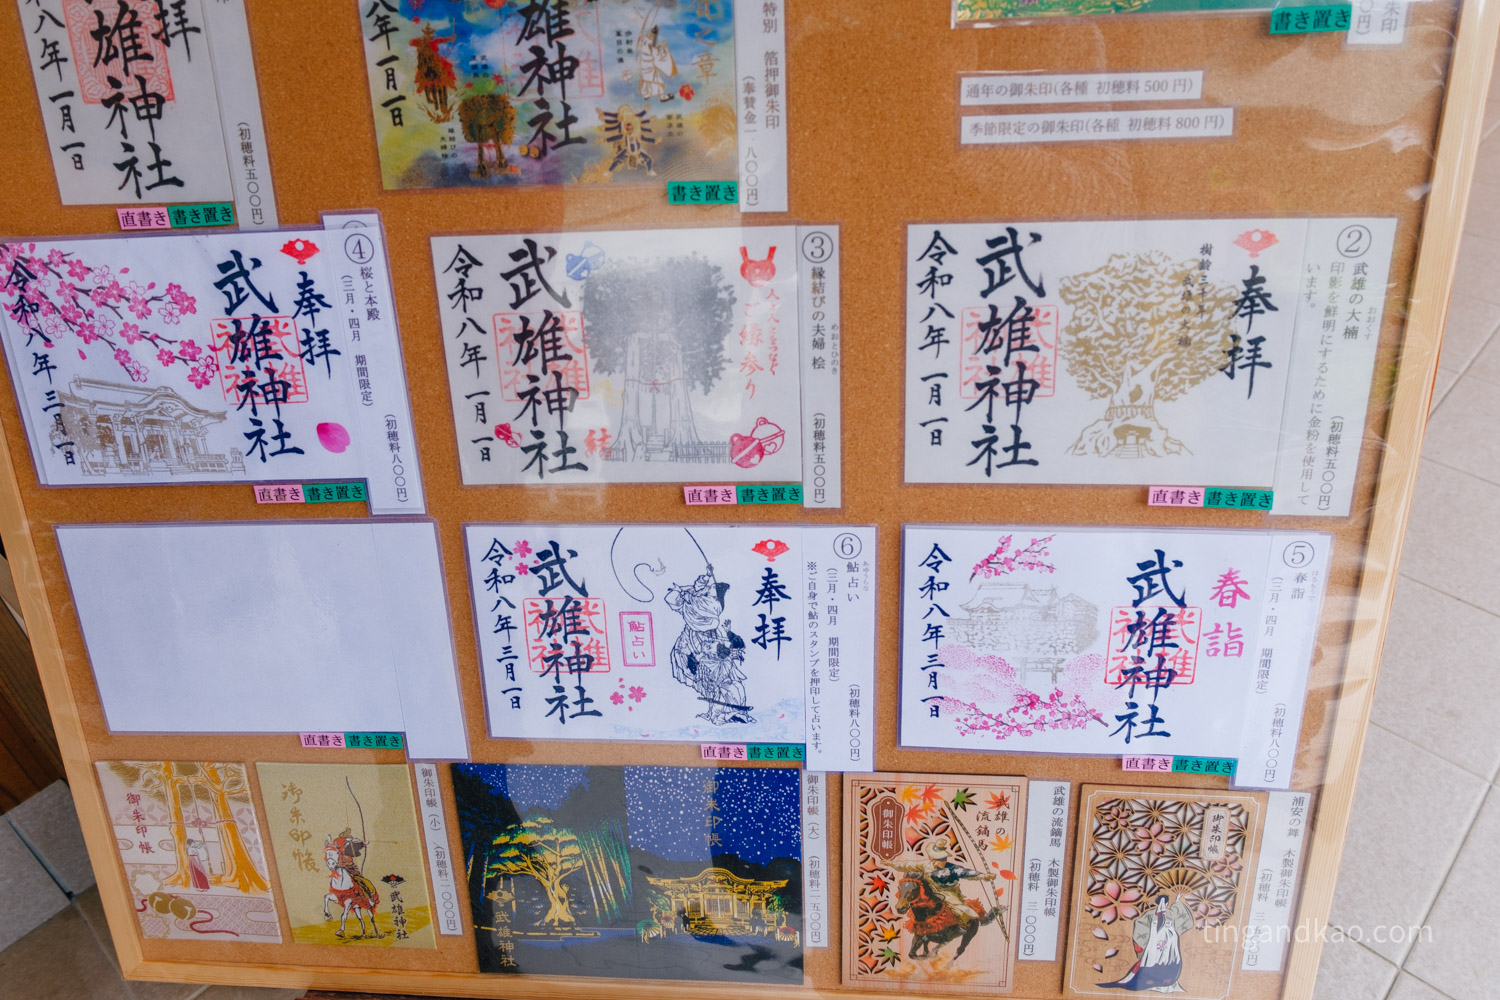 雄神社
拝
八年
一月一日
(初穂料五〇〇円)
直書き 書き置き
八年一月一日
雄神社
之章
特別 箔押御朱印
(奉賛金一、八〇〇円)
書き置き
書き置き
朱印
通年の御朱印(各種 初穂料 500 円)
季節限定の御朱印(各種 初穂料 800 円)
④
桜と本殿
(三月・四月 期間限定)
(初穂料八〇〇円)
奉拝
武雄神社
令和八年三月一日
直書き 書き置き
③
縁結びの夫婦桧
めおとひのき
(初穂料五〇〇円)
ご縁参り
結
武雄神社
令和八年一月一日
直書き 書き置き
②
武雄の大楠
おおくす
(初穂料五〇〇円)
印影を鮮明にするために金粉を使用して
います。
奉拝
樹齢三千年
武雄の大楠
武雄神社
令和八年一月一日
直書き 書き置き
直書き 書き置き
⑥
鮎占い
(三月・四月 期間限定)
(初穂料八〇〇円)
※ご自身で鮎のスタンプを押印して占います。
奉拝
鮎占い
武雄神社
令和八年三月一日
直書き 書き置き
⑤
春詣
(三月・四月 期間限定)
(初穂料八〇〇円)
春詣
武雄神社
令和八年三月一日
直書き 書き置き
御朱印帳
御朱印帳
武雄神社
御朱印帳(小)
御朱印帳
武雄神社
御朱印帳(大)
御朱印帳
武雄の流鏑馬
武雄の流鏑馬 木製御朱印帳
御朱印帳
浦安の舞 木製御朱印帳
tingandkao.com